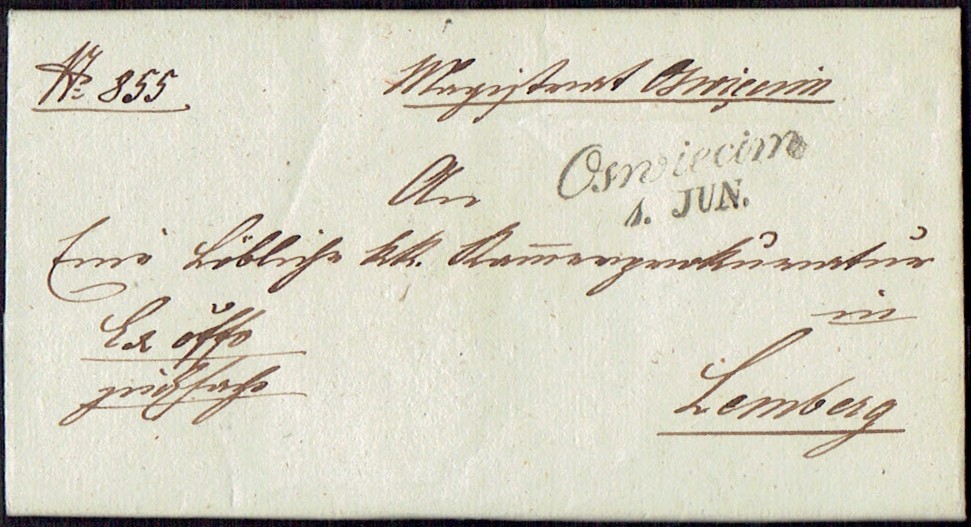 No 855
Magistrat Oswięcim
Oswiecim
4. JUN.
An
Eine Löbliche kk. Kam̅erprokuratur
in
Ex offo
Lemberg